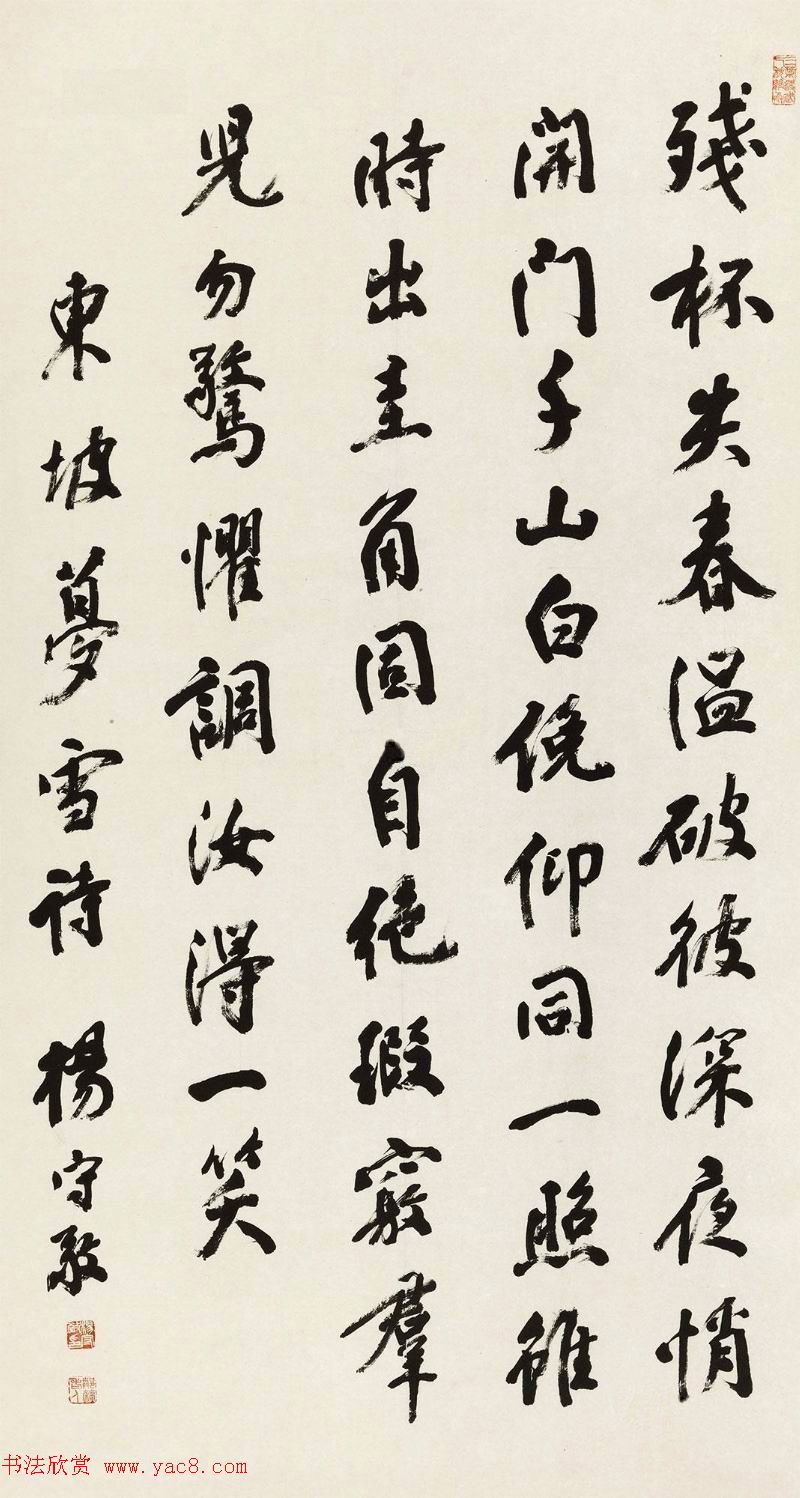 殘杯失春温破被深夜悄
開门千山白俛仰同一照雖
時出圭角固自絶瑕竅羣
児勿驚懼調汝得一笑
東坡夢雪詩 楊守敬
书法欣赏 www.yac8.com